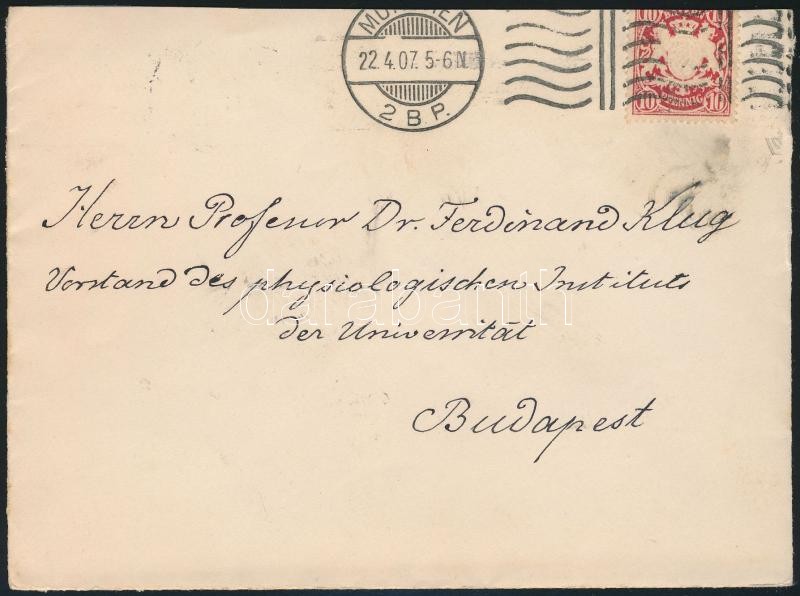 MÜNCHEN
22.4.07. 5-6 N
2 B.P.
10 10
10 PFENNIG 10
Herrn Professor Dr. Ferdinand Klug
Vorstand des physiologischen Instituts
der Universität
Budapest
darabanth